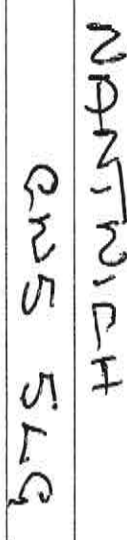 NANTWICH
CW5 5LG